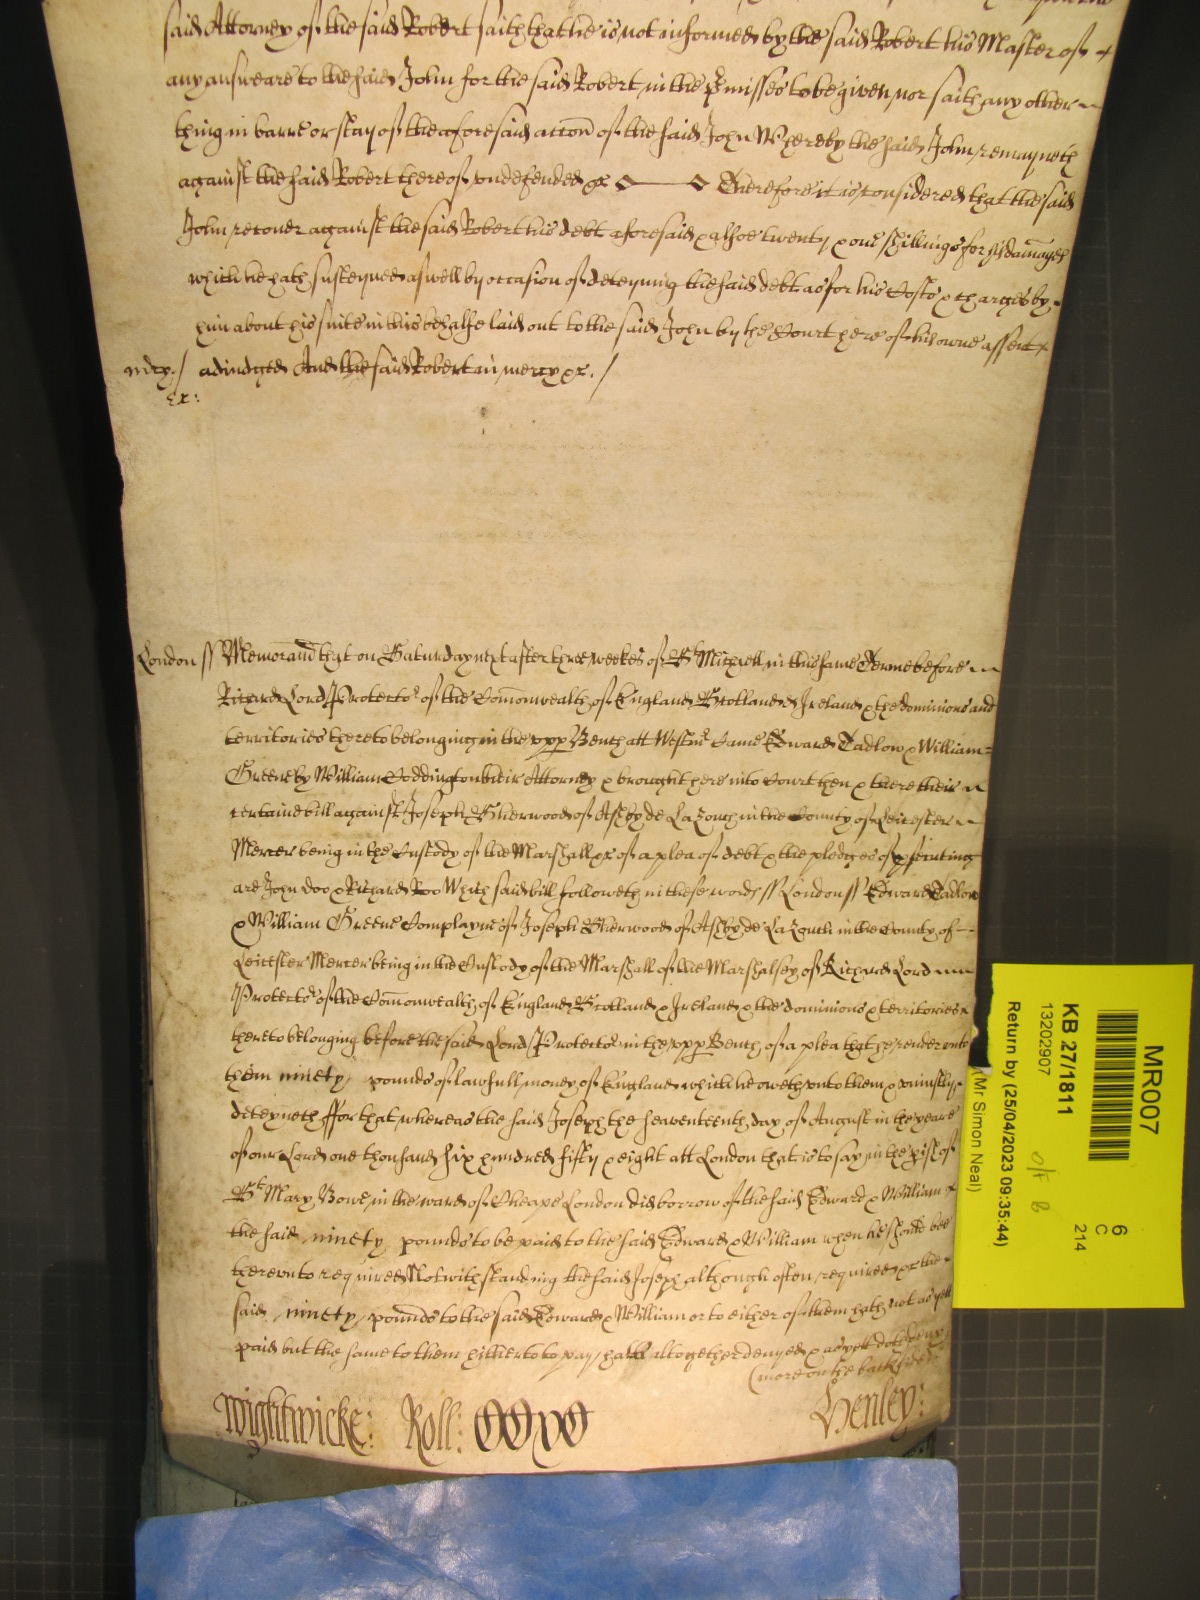 said Attorney of the said Robert saith that he is not informed by the said Robert his Master of
any answeare to the said John for the said Robert in the pmisses to be given nor saith any other
thing in barre or stay of the aforesaid accon of the said John Whereby the said John remayneth
against the said Robert thereof undefended &c Therefore it is considered that the said
John recover against the said Robert his debt aforesaid & alsoe twenty & one shillings for his damages
which he hath susteyned aswell by occasion of deteyning the said debt as for his Costs & charges by
him about his suite in this behalfe laid out to the said John by the Court here of his owne assent
mcy / adiudged And the said Robert in mercy &c /
Ex:
London ss Memorand that on Saturday next after three weekes of St Michaell in this same Terme before
Richard Lord Protector of the Comonwealth of England Scotland & Ireland & the dominions and
territories thereto belonging in the upp Bench att Westmr Came Edward Tadlow & William
Greene by William Coddington their Attorney & brought here into Court then & there their
certaine bill against Joseph Sherwood of Ashby de La Zouch in the County of Leicester
Mercer being in the Custody of the Marshall &c of a plea of debt & the pledges of psecuting
are John Doo & Richard Roo Which said bill followeth in these words ss London ss Edward Tadlow
& William Greene Complayne of Joseph Sherwood of Ashby de La Zouch in the County of
Leicester Mercer being in the Custody of the Marshall of the Marshalsey of Richard Lord
Protector of the Comonwealth of England Scotland & Ireland & the dominions & territories
thereto belonging before the said Lord Protector in the upp Bench of a plea that he render unto
them ninety pounds of lawfull money of England which he oweth unto them & uniustly
deteyneth ffor that whereas the said Joseph the seaventeenth day of August in the yeare
of our Lord one thousand six hundred fifty & eight att London that is to say in the pish of
St Mary Bowe in the ward of Cheape London did borrow of the said Edward & William
the said ninety pounds to be paid to the said Edward & William when he should bee
thereunto required Notwithstanding the said Joseph although often required &c the
said ninety pounds to the said Edward & William or to either of them hath not as yett
paid but the same to them hitherto to pay hath altogether denyed & as yett doth deny
(more on the backside
Wightwicke: Roll: Henley:
MR007
KB 27/1811
13202907
Return by (25/04/2023 09:35:44)
(Mr Simon Neal)
6
C
214